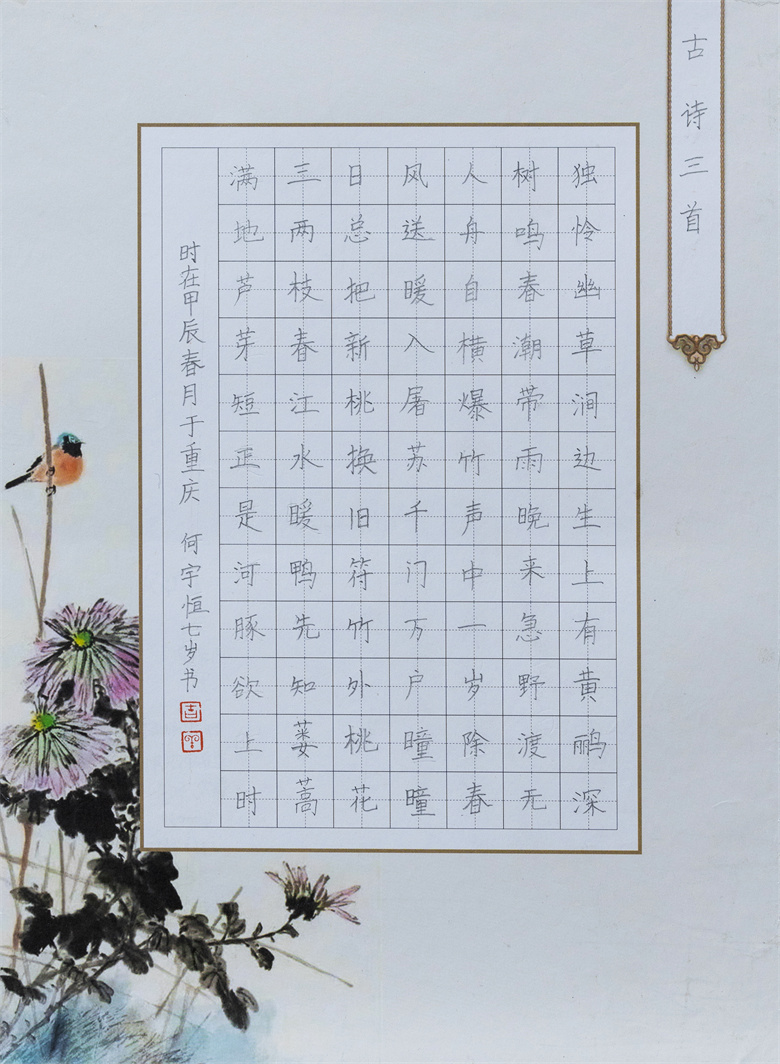 古诗三首
独怜幽草涧边生上有黄鹂深
树鸣春潮带雨晚来急野渡无
人舟自横爆竹声中一岁除春
风送暖入屠苏千门万户曈曈
日总把新桃换旧符竹外桃花
三两枝春江水暖鸭先知蒌蒿
满地芦芽短正是河豚欲上时
时在甲辰春月于重庆 何宇恒七岁书